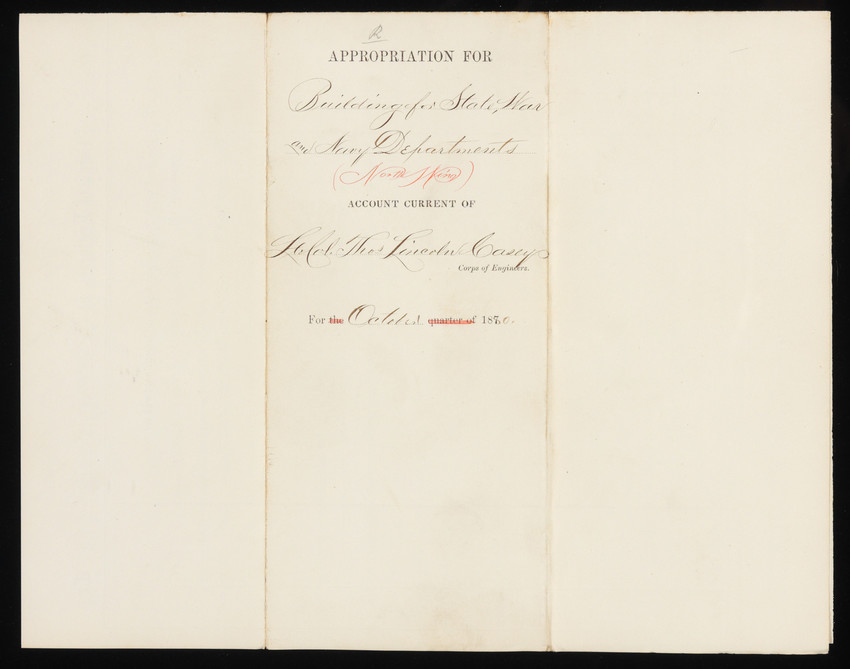 R
APPROPRIATION FOR
Building for State, War
and Navy Departments
(North Wing)
ACCOUNT CURRENT OF
Lt. Col. Thos Lincoln Casey
Corps of Engineers.
For the October quarter of 1880.